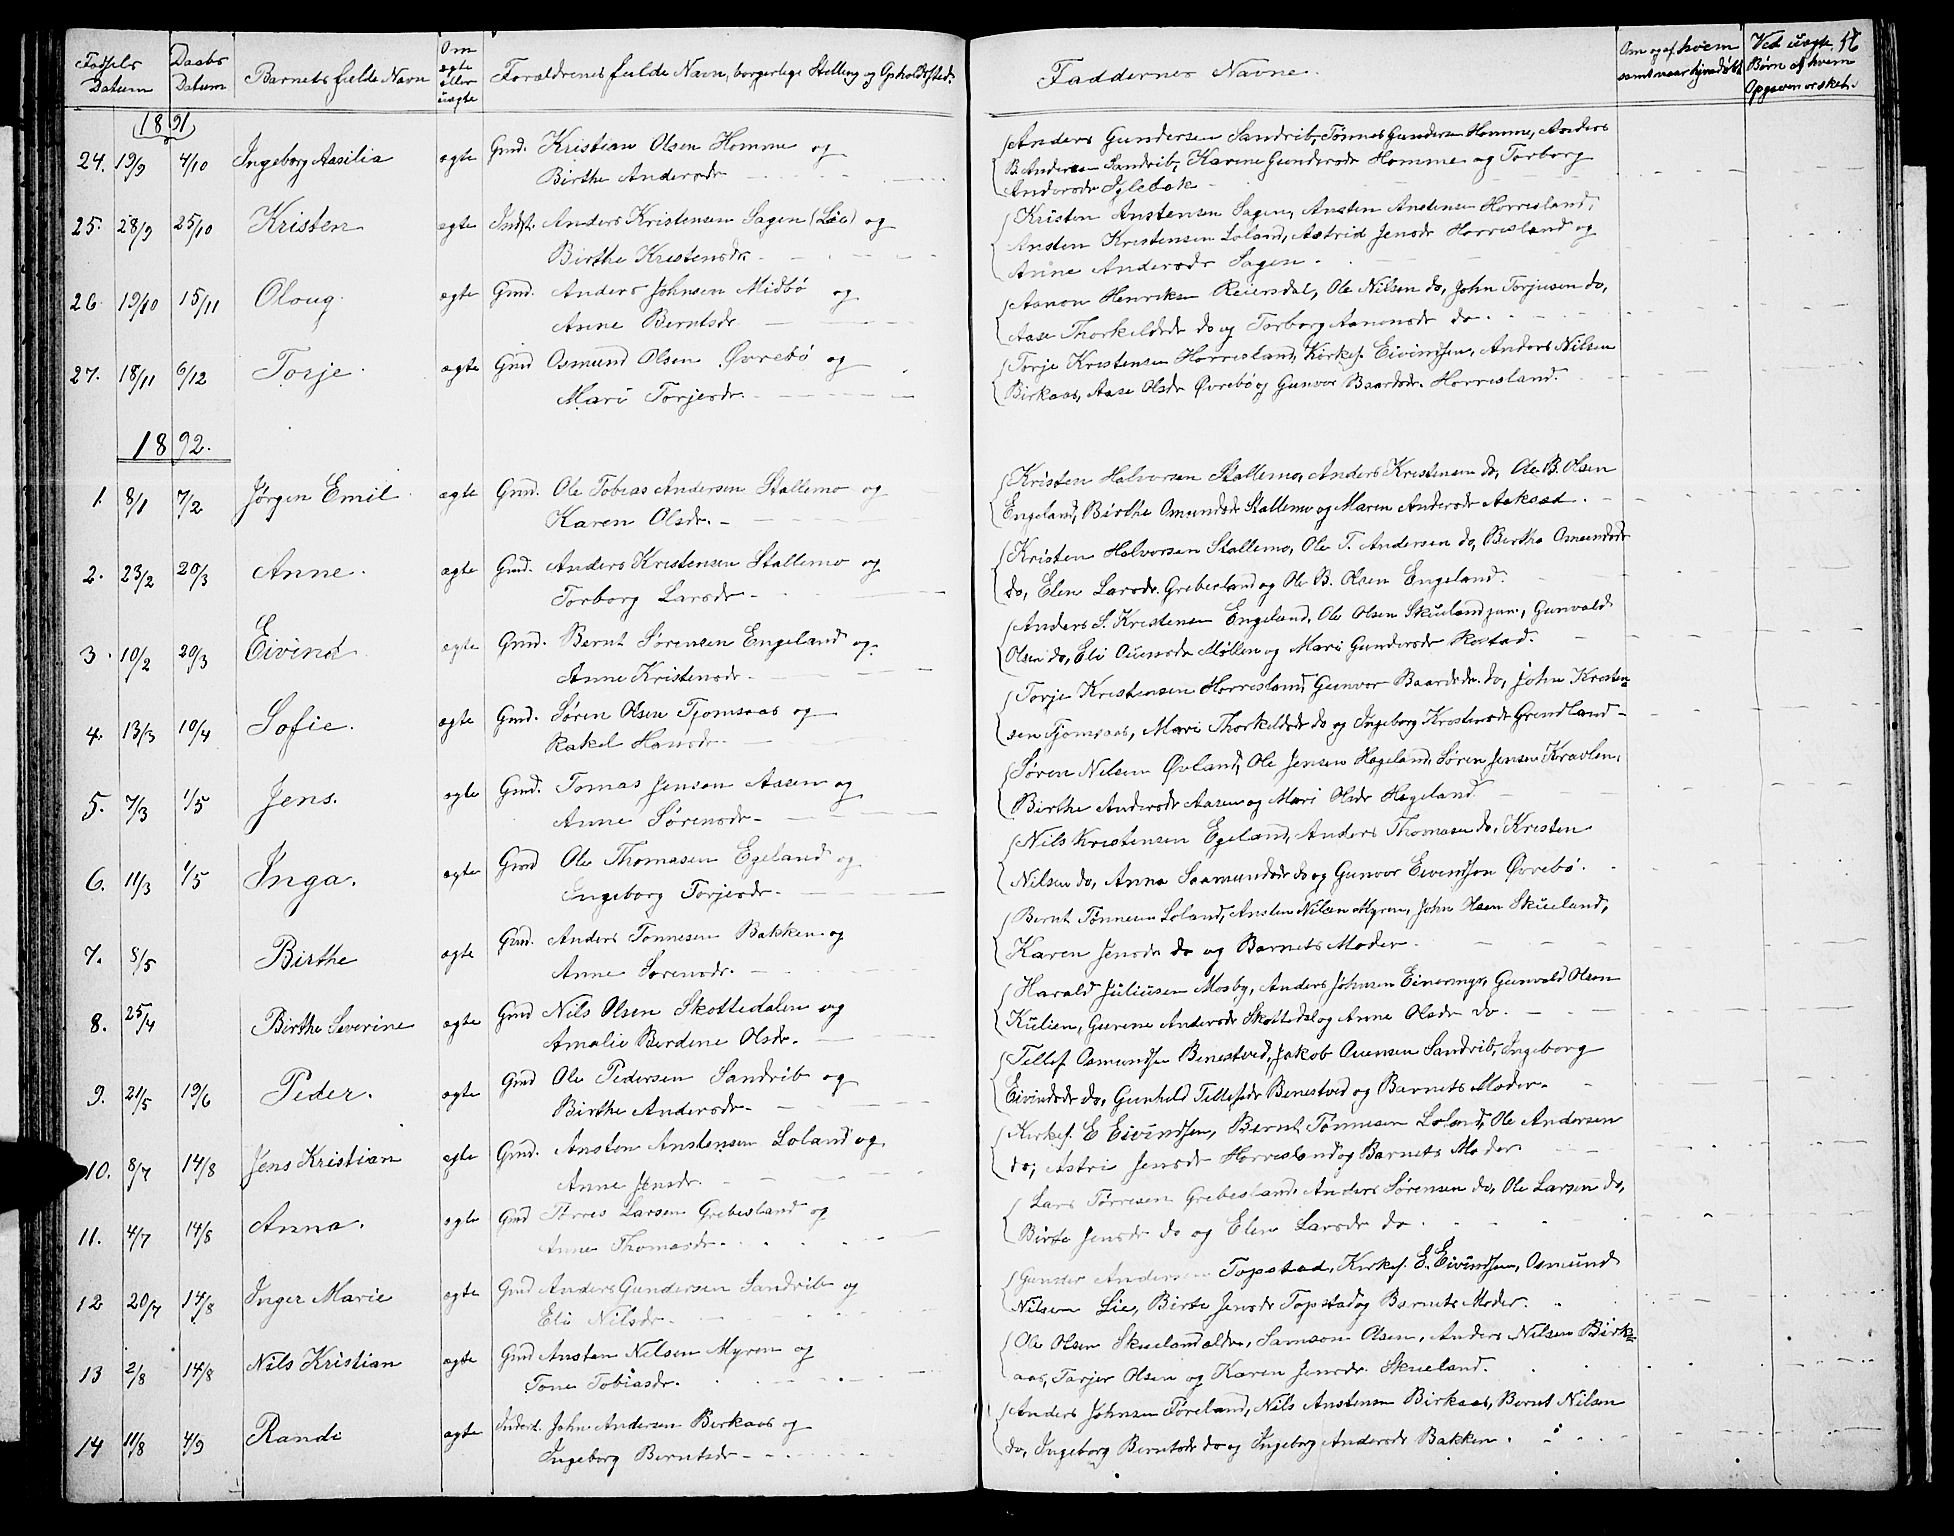 Fødsels Datum | Daabs Datum | Barnets fulde Navn | Om ægte eller uægte | Forældrenes fulde Navn, borgerlige Stilling og Opholdssted. | Faddernes Navne. | Om og af hvem samt naar hjemdøbt | Ved uægte Børn af hvem Opgaven er sket.
1891
24. 19/9 4/10 Ingeborg Aasilia ægte Gmd. Kristian Olsen Homme og
Birthe Andersdr.
Anders Gundersen Sandrib, Tønnes Gundersen Homme, Anders
B. Andersen Sandrib, Karine Gundersdr Homme og Torborg
Andersdr Iglebæk
25. 28/9 25/10 Kristen ægte Indst. Anders Kristensen Sagen (Lie) og
Birthe Kristensdr.
Kristen Anstensen Sagen, Ansten Anstensen Horrisland,
Ansten Kristensen Loland, Astrid Jensdr Horrisland og
Anne Andersdr Sagen.
26. 19/10 15/11 Oloug. ægte Gmd. Anders Johnsen Midbö og
Anne Berntsdr
Aanon Henriksen Reiersdal, Ole Nilsen do, John Torjusen do,
Aase Thorkildsdr do og Torborg Aanonsdr do.
27. 18/11 6/12 Torje. ægte Gmd Osmund Olsen Øvrebö og
Mari Torjesdr.
Torje Kristensen Horrisland, Kirkes. Eivindsen, Anders Nilsen
Birkaas, Aase Olsdr Øvrebö og Gunvor Baardsdr. Horrisland.
1892.
1. 8/1 7/2 Jørgen Emil. ægte Gmd. Ole Tobias Andersen Stallemo og
Karen Olsdr.
Kristen Halvorsen Stallemo, Anders Kristensen do, Ole B. Olsen
Engeland, Birthe Omundsdr Stallemo og Maren Andersdr Aaksad.
2. 23/2 20/3 Anne. ægte Gmd. Anders Kristensen Stallemo og
Torborg Larsdr.
Kristen Halvorsen Stallemo, Ole T. Andersen do, Berthe Omundsdr
do, Elen Larsdr. Grebesland og Ole B. Olsen Engeland.
3. 10/2 20/3 Eivind ægte Gmd. Bernt Sørensen Engeland og
Anne Kristensdr.
Anders S. Kristensen Engeland, Ole Olsen Skueland jun., Gunvald
Olsen do, Eli Ouensdr Møllen og Mari Gundersdr Rostad.
4. 13/3 10/4 Sofie. ægte Gmd. Søren Olsen Tjomsaas og
Rakel Hansdr.
Torje Kristensen Horrisland, Gunvor Baardsdr. do, John Kristen-
sen Tjomsaas, Mari Thorkildsdr do og Ingeborg Kristensdr Grendland
5. 7/3 1/5 Jens. ægte Gmd. Tomas Jensen Aasen og
Anne Sørensdr.
Søren Nilsen Øvland, Ole Jensen Hageland, Søren Jensen Kravlen,
Birthe Andersdr Aasen og Mari Olsdr Hageland
6. 11/3 1/5 Inga. ægte Gmd Ole Thomasen Egeland og
Ingeborg Torjesdr.
Nils Kristensen Egeland, Anders Thomasen do, Kristen
Nilsen do, Anna Saamundsdr do og Gunvor Eivindsen Øvrebö.
7. 8/5 Birthe ægte Gmd. Anders Tønnesen Bakken og
Anne Sørensdr.
Bernt Tønnesen Loland, Ansten Nilsen Myren, John Olsen Skueland,
Karen Jensdr do og Barnets Moder.
8. 25/4 Birthe Severine ægte Gmd Nils Olsen Skottedalen og
Amalie Berdine Olsdr.
Harald Juliusen Mosby, Anders Johnsen Einarmyr, Gunvald Olsen
Kulien, Gurine Andersdr Skottedal og Anne Olsdr do.
9. 21/5 19/6 Peder. ægte Gmd Ole Pedersen Sandrib og
Birthe Andersdr.
Tellef Osmundsen Benestved, Jakob Ouensen Sandrib, Ingeborg
Eivindsdr do, Gunhild Tellefsdr Benestved og Barnets Moder.
10. 8/7 14/8 Jens Kristian ægte Gmd. Ansten Anstensen Loland og
Anne Jensdr.
Kirkes. E Eivindsen, Bernt Tønnesen Loland, Ole Andersen
do, Astri Jensdr Horrisland og Barnets Moder.
11. 4/7 14/8 Anna. ægte Gmd Tørres Larsen Grebesland og
Anne Thomasdr.
Lars Tørresen Grebesland, Anders Sørensen do, Ole Larsen do,
Birte Jensdr do og Elen Larsdr do
12 20/7 14/8 Inger Marie ægte Gmd Anders Gundersen Sandrib og
Eli Nilsdr.
Gunder Andersen Topstad, Kirkes. E. Eivindsen, Osmund
Nilsen Lie, Birte Jensdr Topstad og Barnets Moder.
13 2/8 14/8 Nils Kristian ægte Gmd Ansten Nilsen Myren og
Tone Tobiasdr.
Ole Olsen Skueland ældre, Samson Olsen, Anders Nilsen Birk-
aas, Tarjer Olsen og Karen Jensdr. Skueland.
14 11/8 4/9 Randi ægte Inderst. John Andersen Berkaas og
Ingeborg Berntsdr
Anders Johnsen Føreland, Nils Anstensen Birkaas, Bernt Nilsen
do, Ingeborg Berntsdr do og Ingeborg Andersdr Bakken.